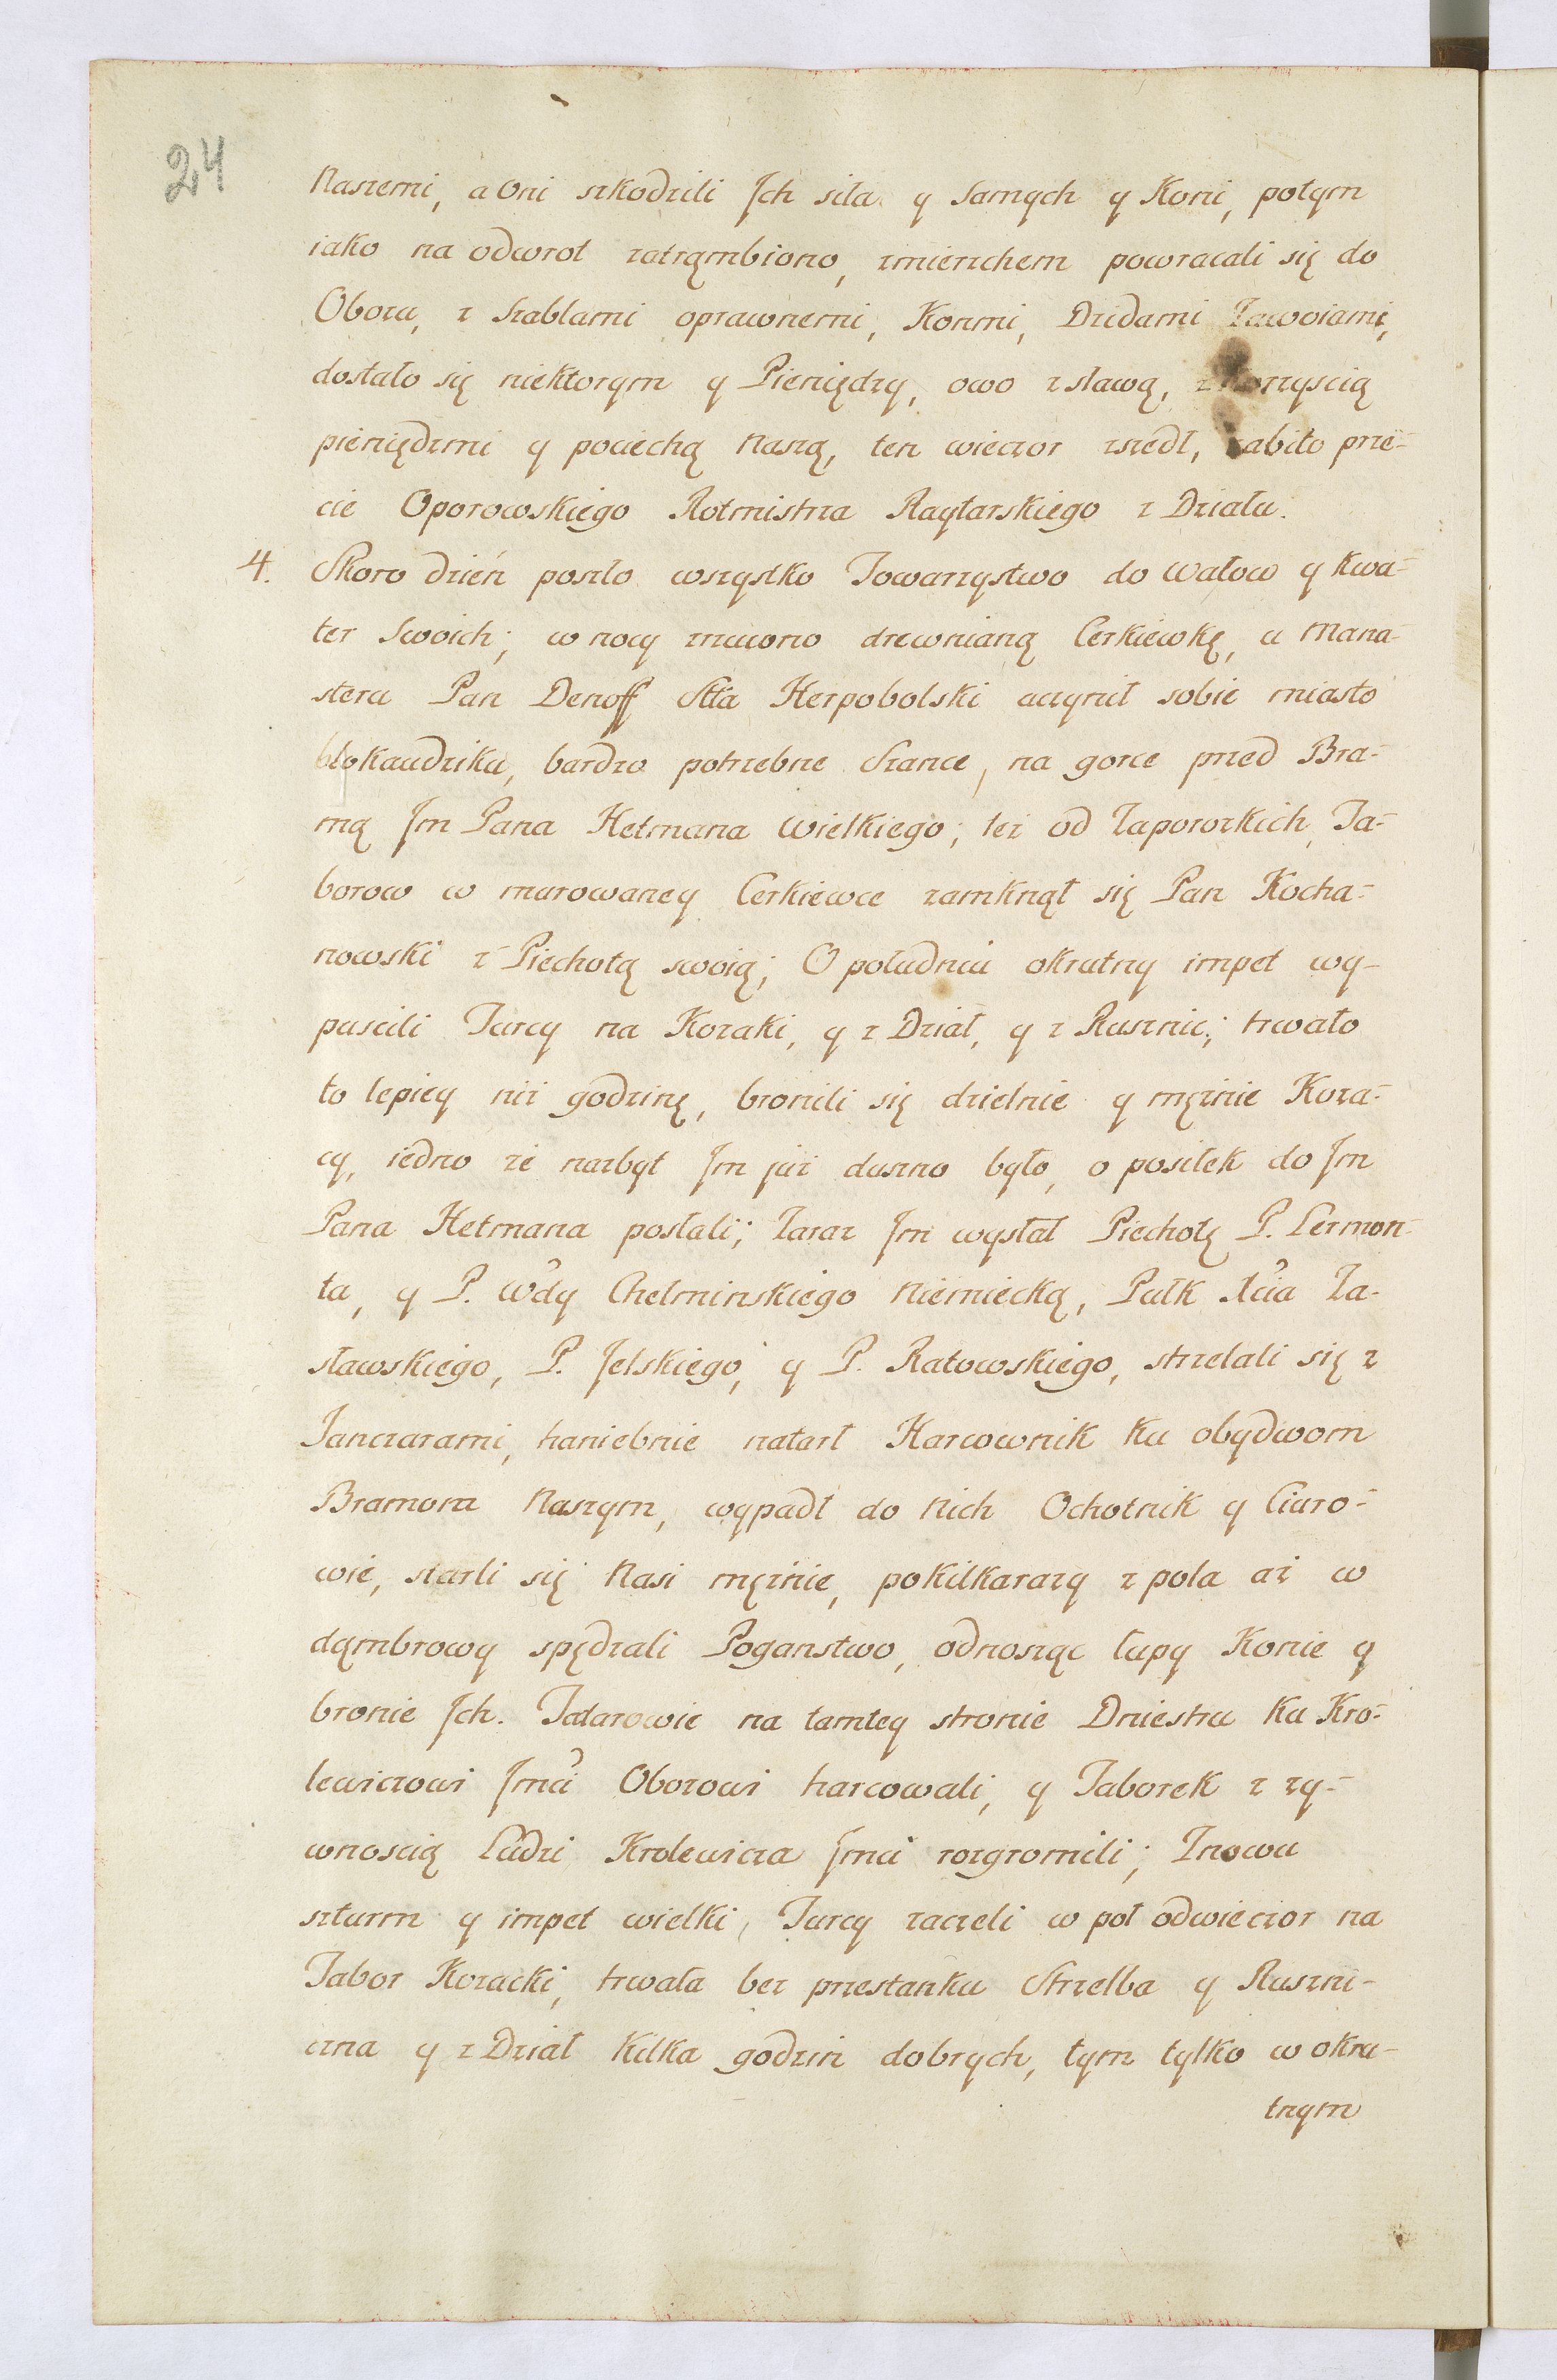 24
Naszemi, a oni szkodzili Ich siła y Samych y Koni, potym
iako na odwrot zatrąmbiono, zmierzchem powracali się do
Obozu, z Szablami oprawnemi, Konmi, Dzidami Zawoiami,
dostało się niektorym y Pieniędzy, owo z sławą, z Korzyscią
pieniędzmi y pociechą Naszą, ten wieczor zszedł, zabito prze-
cie Oporowskiego Rotmistrza Raytarskiego z Działa.
4. Skoro dzień poszło wszystko Towarzystwo do wałow y kwa-
ter Swoich; w nocy zrzucono drewnianą Cerkiewkę, u Mana-
steru Pan Denoff Stta Herpobolski uczynił sobie miasto
blokaudziku, bardzo potrzebne Szance, na gorce przed Bra-
mą Jm Pana Hetmana Wielkiego; też od Zaporozkich Ta-
borow w murowaney Cerkiewce zamknął się Pan Kocha-
nowski z Piechotą swoią; O południu okrutny impet wy-
puscili Turcy na Kozaki, y z Dział, y z Rusznic; trwało
to lepiey niż godzinę, bronili się dzielnie y mężnie Koza-
cy, iedno że nazbyt Im już duszno było, o posiłek do Jm
Pana Hetmana posłali; Zaraz Im wysłał Piechotę P. Lermon-
ta, y P. Wdy Chełminskiego Niemiecką, Pułk Xcia Za-
sławskiego, P. Jelskiego, y P. Ratowskiego, strzelali się z
Janczarami, haniebnie natarł Harcownik ku obydwom
Bramom Naszym, wypadł do Nich Ochotnik y Ciuro-
wie, starli się Nasi mężnie, po kilka razy z pola aż w
dąmbrowy spędzali Poganstwo, odnosząc łupy Konie y
bronie Ich. Tatarowie na tamtey stronie Dniestru ku Kro-
lewiczowi Jmci Obozowi harcowali, y Taborek z ży-
wnoscią Ludzi Krolewicza Jmci rozgromili; Znowu
szturm y impet wielki, Turcy zaczeli w poł odwieczor na
Tabor Kozacki, trwała bez przestanku Strzelba y Ruszni-
czna y z Dział Kilka godzin dobrych, tym tylko w okru-
tnym